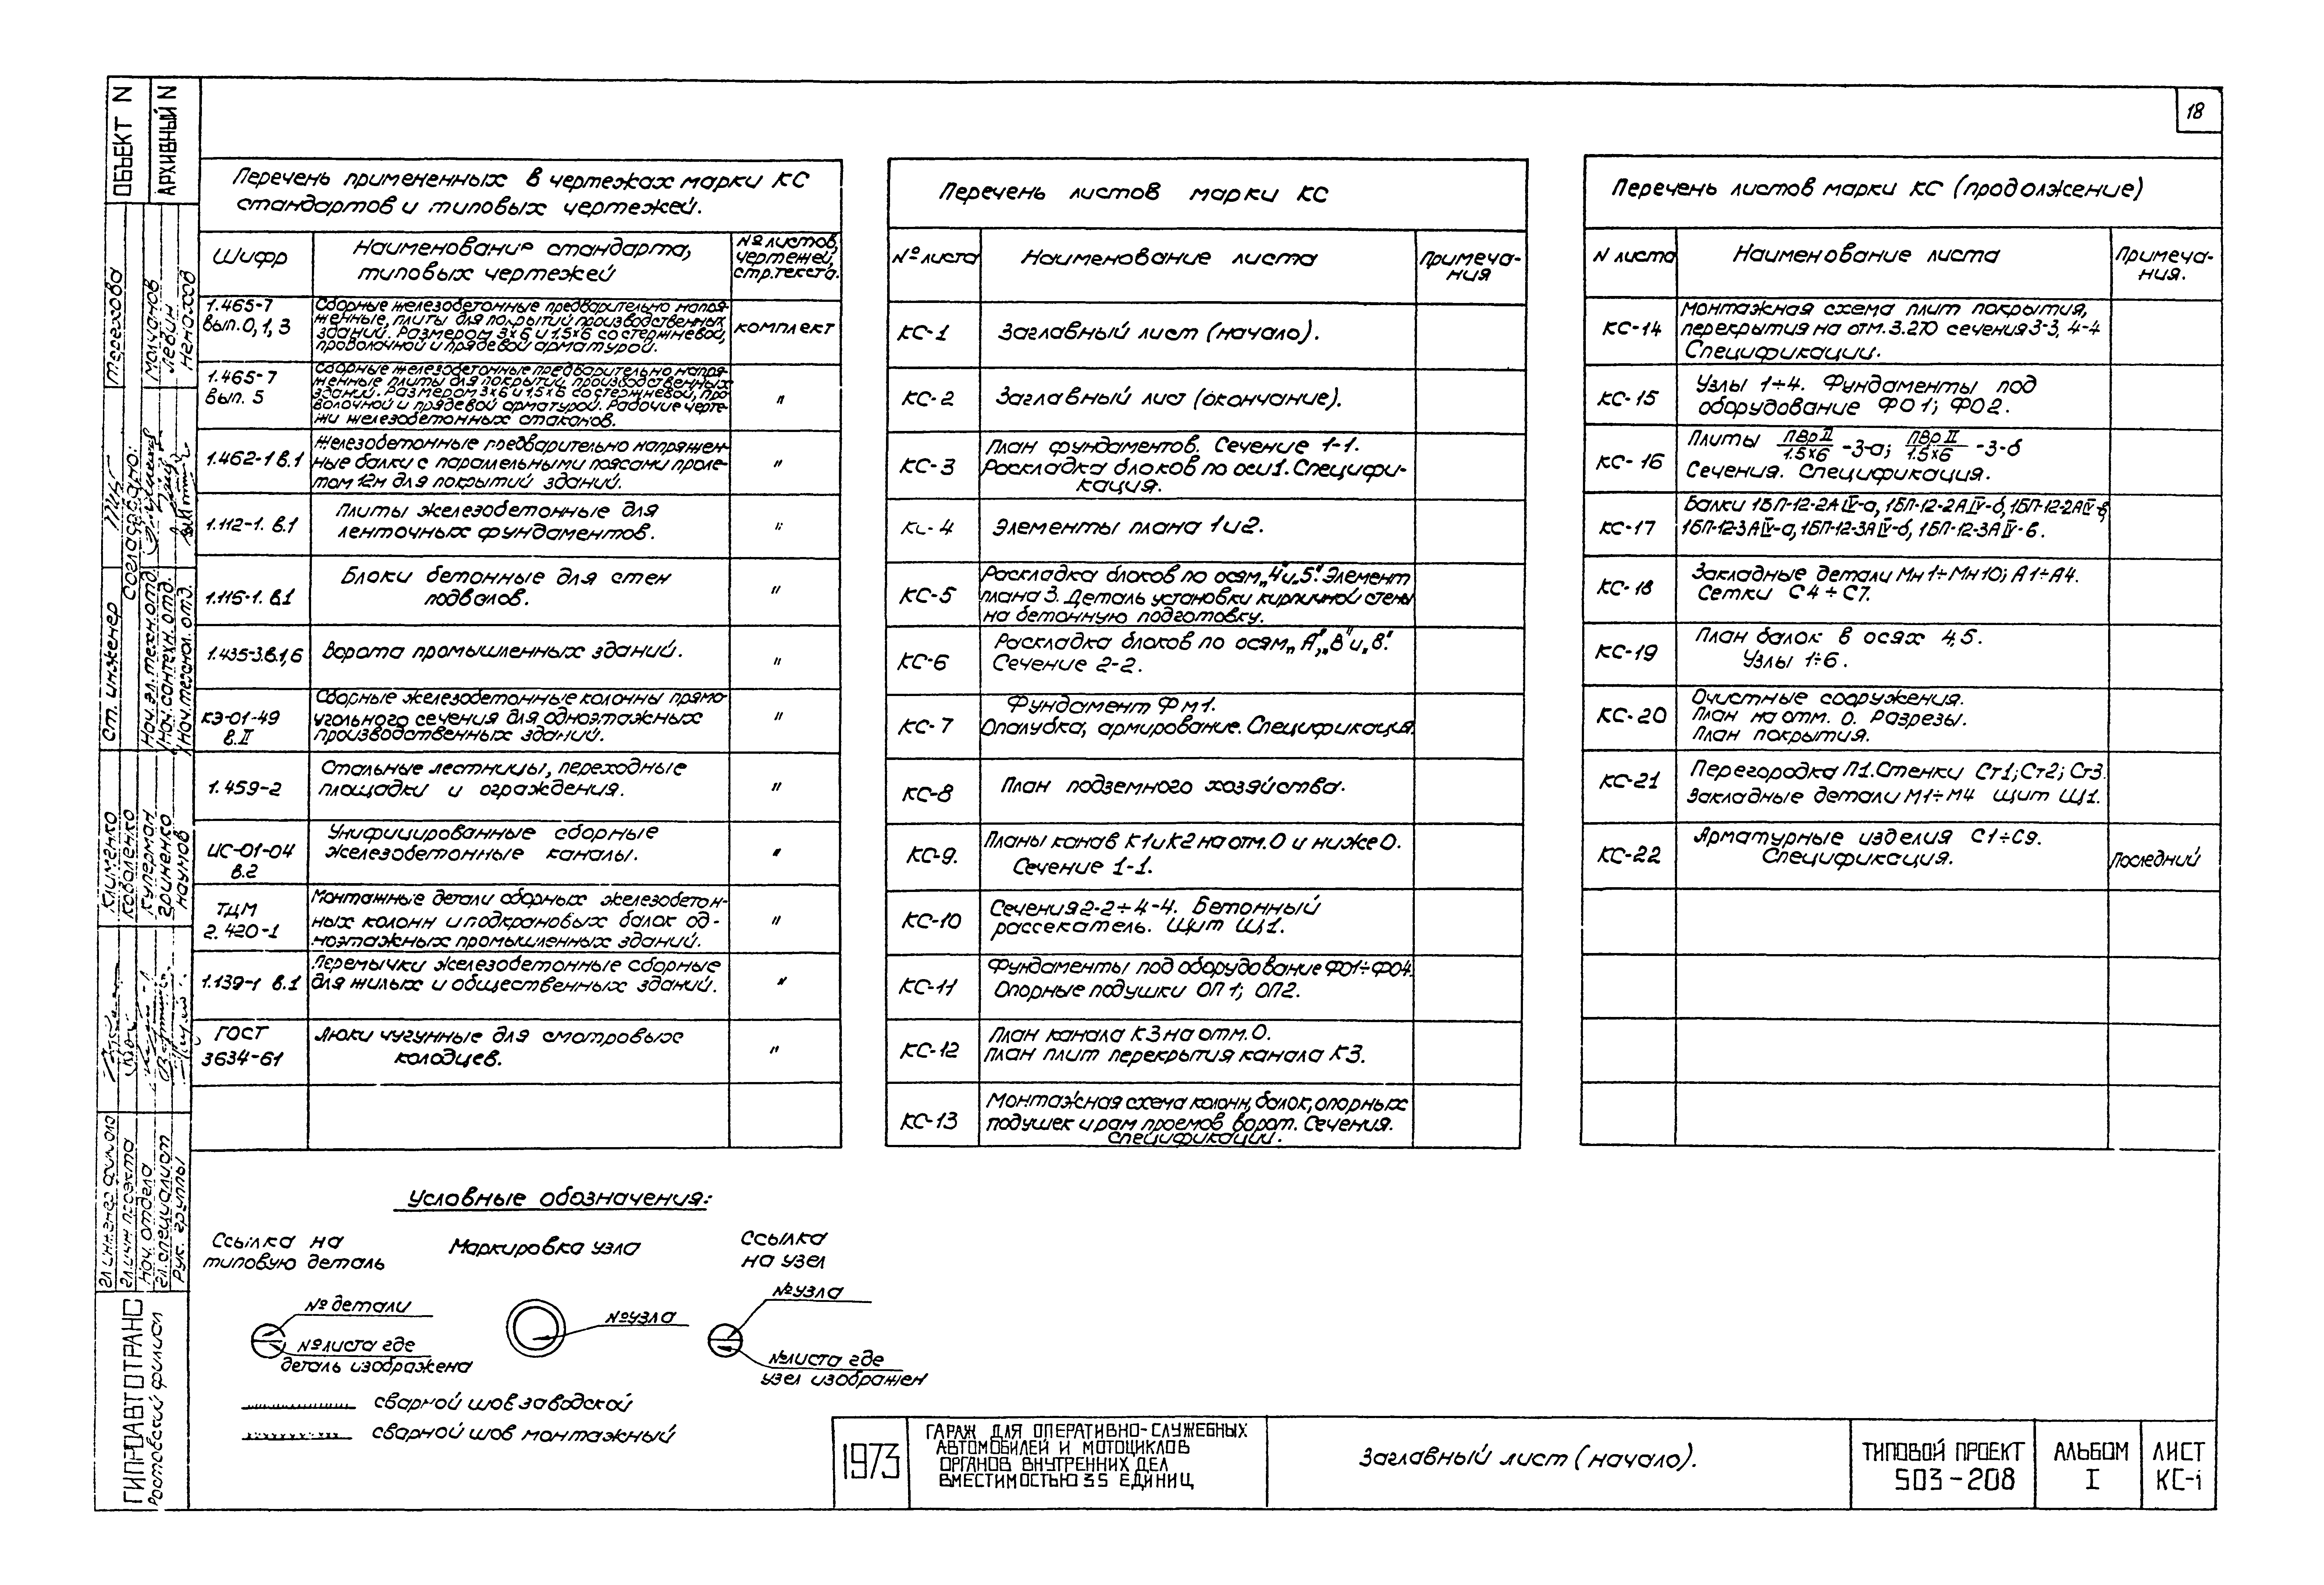 18
Перечень примененных в чертежах марки КС
стандартов и типовых чертежей.
Шифр
Наименование стандарта,
типовых чертежей
№ листов,
чертежей,
стр. текста.
1.465-7
вып. 0, 1, 3
Сборные железобетонные предварительно напря-
женные плиты для покрытий производственных
зданий. Размером 3х6 и 1,5х6 со стержневой,
проволочной и прядевой арматурой.
комплект
1.465-7
вып. 5
Сборные железобетонные предварительно напря-
женные плиты для покрытий производственных
зданий. Размером 3х6 и 1,5х6 со стержневой, про-
волочной и прядевой арматурой. Рабочие черте-
жи железобетонных стаканов.
"
1.462-1 в.1
Железобетонные предварительно напряжен-
ные балки с параллельными поясами проле-
том 12м для покрытий зданий.
"
1.112-1. в.1
Плиты железобетонные для
ленточных фундаментов.
"
1.116-1. в.1
Блоки бетонные для стен
подвалов.
"
1.435-3.в.1,6
Ворота промышленных зданий.
"
КЭ-01-49
в.II
Сборные железобетонные колонны прямо-
угольного сечения для одноэтажных
производственных зданий.
"
1.459-2
Стальные лестницы, переходные
площадки и ограждения.
"
ИС-01-04
в.2
Унифицированные сборные
железобетонные каналы.
"
ТДМ
2.420-1
Монтажные детали сборных железобетон-
ных колонн и подкрановых балок од-
ноэтажных промышленных зданий.
"
1.139-1 в.1
Перемычки железобетонные сборные
для жилых и общественных зданий.
"
ГОСТ
3634-61
Люки чугунные для смотровых
колодцев.
"
Перечень листов марки КС
№ листа
Наименование листа
Примеча-
ния
КС-1
Заглавный лист (начало).
КС-2
Заглавный лист (окончание).
КС-3
План фундаментов. Сечение 1-1.
Раскладка блоков по оси 1. Специфи-
кация.
КС-4
Элементы плана 1 и 2.
КС-5
Раскладка блоков по осям „4" и „5". Элемент
плана 3. Деталь установки кирпичной стены
на бетонную подготовку.
КС-6
Раскладка блоков по осям „А", „Б" и „В".
Сечение 2-2.
КС-7
Фундамент Фм1.
Опалубка, армирование. Спецификация.
КС-8
План подземного хозяйства.
КС-9.
Планы канав К1 и К2 на отм. 0 и ниже 0.
Сечение 1-1.
КС-10
Сечения 2-2÷4-4. Бетонный
рассекатель. Щит Щ1.
КС-11
Фундаменты под оборудование ФО1÷ФО4.
Опорные подушки ОП1; ОП2.
КС-12
План канала К3 на отм. 0.
План плит перекрытия канала К3.
КС-13
Монтажная схема колонн, балок, опорных
подушек и рам проемов ворот. Сечения.
Спецификации.
Перечень листов марки КС (продолжение)
N листа
Наименование листа
Примеча-
ния.
КС-14
Монтажная схема плит покрытия,
перекрытия на отм. 3.270 сечения 3-3, 4-4
Спецификации.
КС-15
Узлы 1÷4. Фундаменты под
оборудование ФО1; ФО2.
КС-16
Плиты ПВрII/1.5х6 -3-а; ПВрII/1.5х6 -3-б
Сечения. Спецификация.
КС-17
Балки 1БП-12-2АIV-а, 1БП-12-2АIV-б, 1БП-12-2АIV-в,
1БП-12-3АIV-а, 1БП-12-3АIV-б, 1БП-12-3АIV-в.
КС-18
Закладные детали Мн1÷Мн10; А1÷А4.
Сетки С4÷С7.
КС-19
План балок в осях 4,5.
Узлы 1÷6.
КС-20
Очистные сооружения.
План на отм. 0. Разрезы.
План покрытия.
КС-21
Перегородка П1. Стенки Ст1; Ст2; Ст3.
Закладные детали М1÷М4 Щит Щ1.
КС-22
Арматурные изделия С1÷С9.
Спецификация.
Последний
Условные обозначения:
Ссылка на
типовую деталь
№ детали
№ листа где
деталь изображена
Маркировка узла
№ узла
Ссылка
на узел
№ узла
№ листа где
узел изображен
сварной шов заводской
сварной шов монтажный
1973
ГАРАЖ ДЛЯ ОПЕРАТИВНО-СЛУЖЕБНЫХ
АВТОМОБИЛЕЙ И МОТОЦИКЛОВ
ОРГАНОВ ВНУТРЕННИХ ДЕЛ
ВМЕСТИМОСТЬЮ 35 ЕДИНИЦ
Заглавный лист (начало).
ТИПОВОЙ ПРОЕКТ
503-208
АЛЬБОМ
I
ЛИСТ
КС-1
ОБЪЕКТ N
АРХИВНЫЙ N
Терехова
Молчанов
Левин
Ненахов
Согласовано:
Ст. инженер
Нач. эл. техн. отд.
Нач. сантехн. отд.
Клименко
Коваленко
Куперман
Гриненко
Наумов
гл. инженер филиала
гл. инж. проекта
Нач. отдела
гл. специалист
Рук. группы
ГИПРОАВТОТРАНС
Ростовский филиал